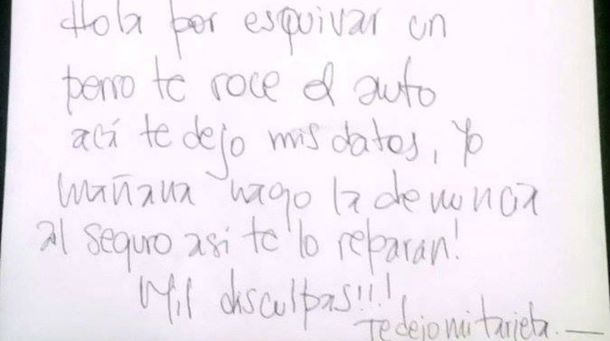 Hola por esquivar un
perro te roce el auto
acá te dejo mis datos, yo
mañana hago la denuncia
al seguro asi te lo reparan!
Mil disculpas!!!
Te dejo mi tarjeta.—